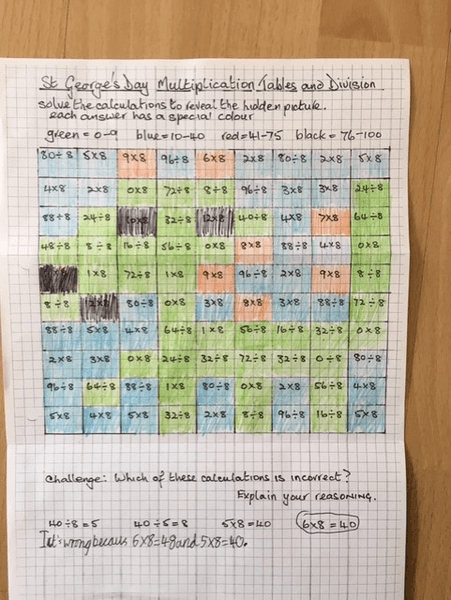 St George's Day Multiplication Tables and Division
solve the calculations to reveal the hidden picture.
each answer has a special colour
green = 0-9 blue = 10-40 red = 41-75 black = 76-100
80÷8 5x8 9x8 96÷8 6x8 2x8 80÷8 2x8 5x8
4x8 2x8 0x8 72÷8 8÷8 96÷8 3x8 3x8 24÷8
88÷8 24÷8 10x8 32÷8 12x8 40÷8 4x8 7x8 64÷8
48÷8 8÷8 16÷8 56÷8 0x8 8x8 88÷8 4x8 0x8
1x8 72÷8 1x8 9x8 96÷8 2x8 9x8 8÷8
8÷8 12x8 80÷8 0x8 3x8 8x8 3x8 88÷8 72÷8
88÷8 5x8 4x8 64÷8 1x8 56÷8 16÷8 32÷8 0x8
2x8 3x8 0x8 24÷8 32÷8 72÷8 32÷8 0÷8 80÷8
96÷8 64÷8 88÷8 1x8 80÷8 0x8 2x8 56÷8 4x8
5x8 4x8 5x8 32÷8 2x8 8÷8 96÷8 16÷8 5x8
Challenge: Which of these calculations is incorrect?
Explain your reasoning.
40÷8=5 40÷5=8 5x8=40 6x8=40
It's wrong becaus 6x8=48 and 5x8=40.